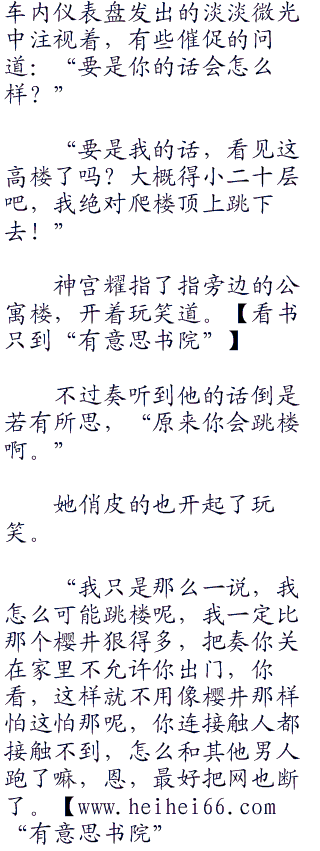 车内仪表盘发出的淡淡微光
中注视着，有些催促的问
道：“要是你的话会怎么
样？”
“要是我的话，看见这
高楼了吗？大概得小二十层
吧，我绝对爬楼顶上跳下
去！”
神宫耀指了指旁边的公
寓楼，开着玩笑道。【看书
只到“有意思书院”】
不过奏听到他的话倒是
若有所思，“原来你会跳楼
啊。”
她俏皮的也开起了玩
笑。
“我只是那么一说，我
怎么可能跳楼呢，我一定比
那个樱井狠得多，把奏你关
在家里不允许你出门，你
看，这样就不用像樱井那样
怕这怕那呢，你连接触人都
接触不到，怎么和其他男人
跑了嘛，恩，最好把网也断
了。【www.heihei66.com
“有意思书院”